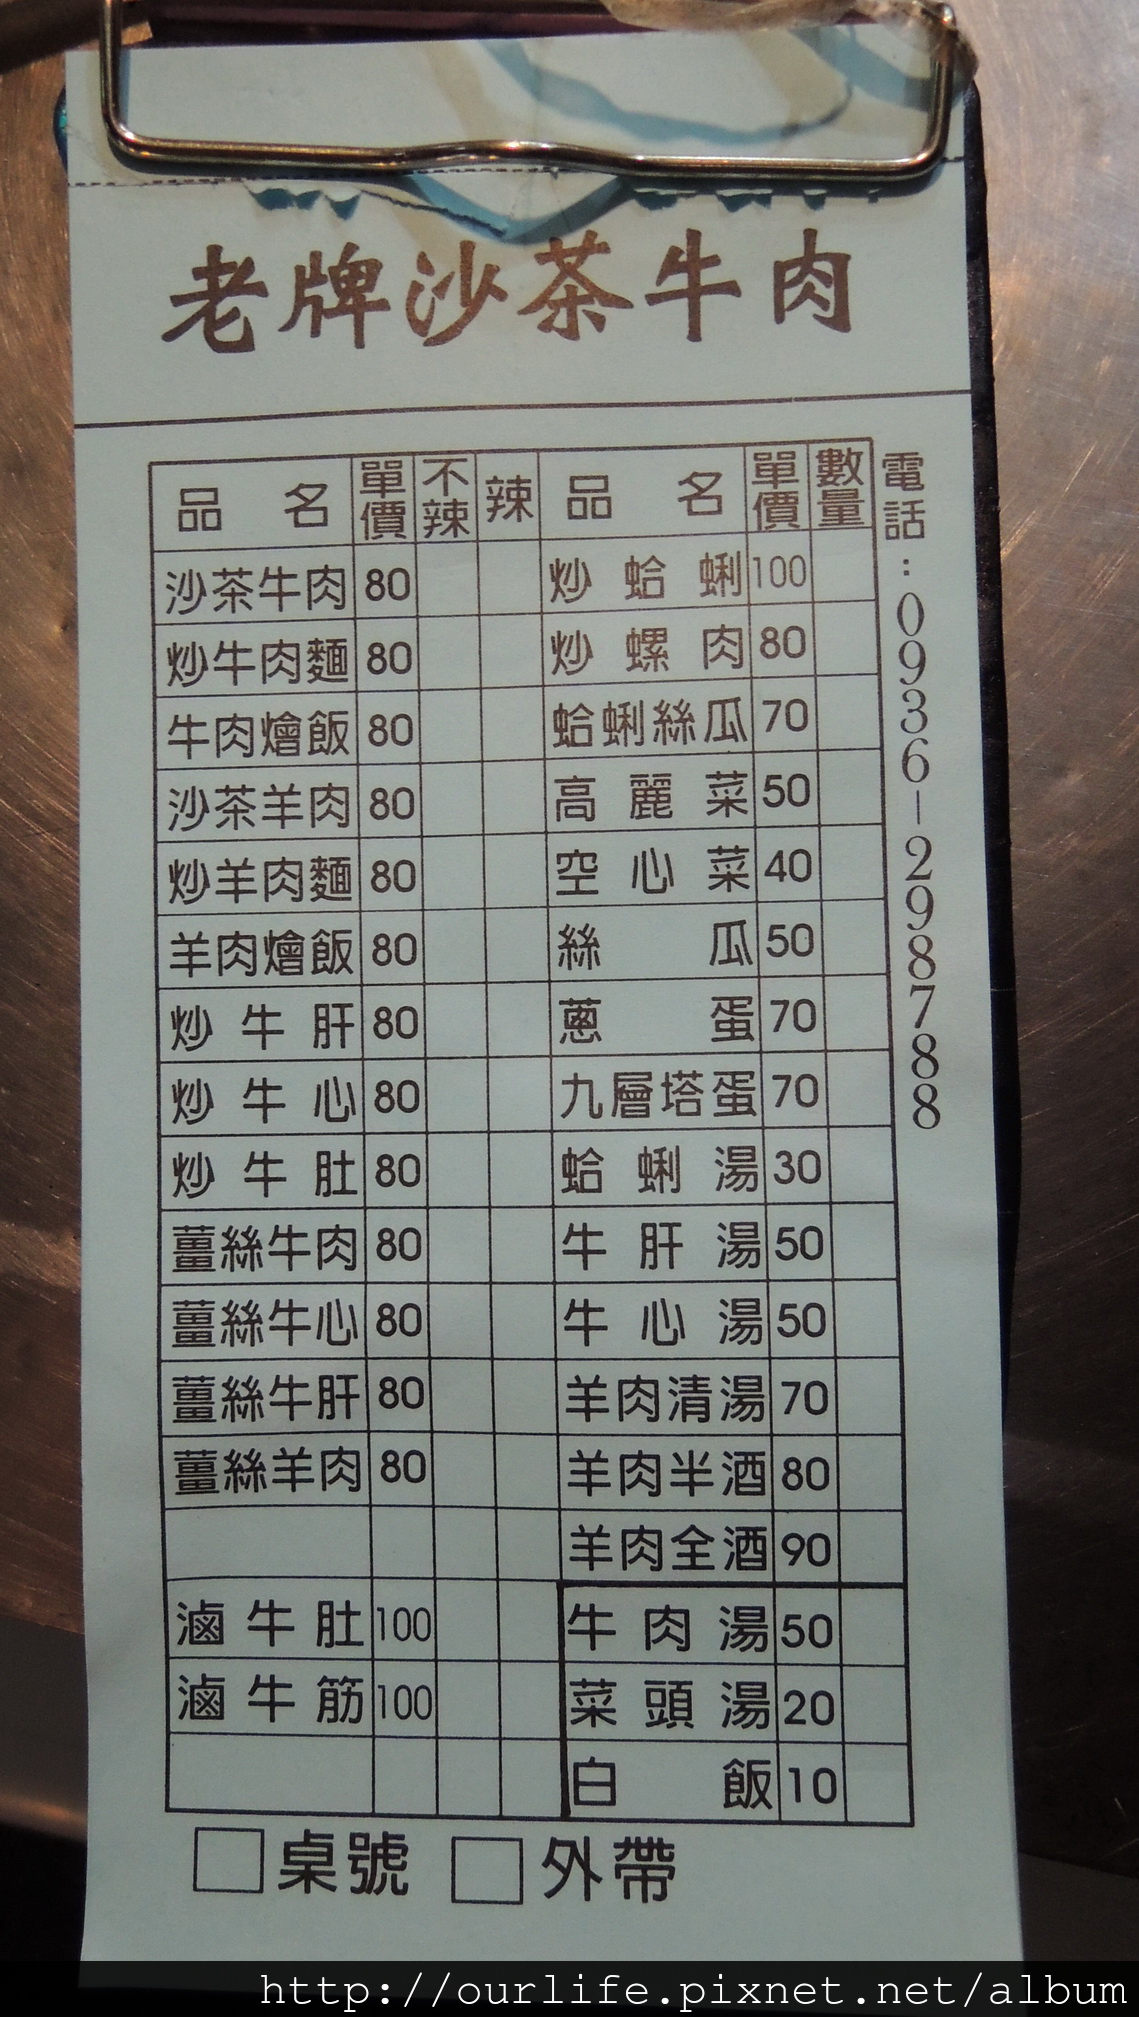 老牌沙茶牛肉
品名 單價 不辣 辣 品名 單價 數量
沙茶牛肉 80 炒蛤蜊 100
炒牛肉麵 80 炒螺肉 80
牛肉燴飯 80 蛤蜊絲瓜 70
沙茶羊肉 80 高麗菜 50
炒羊肉麵 80 空心菜 40
羊肉燴飯 80 絲瓜 50
炒牛肝 80 蔥蛋 70
炒牛心 80 九層塔蛋 70
炒牛肚 80 蛤蜊湯 30
薑絲牛肉 80 牛肝湯 50
薑絲牛心 80 牛心湯 50
薑絲牛肝 80 羊肉清湯 70
薑絲羊肉 80 羊肉半酒 80
羊肉全酒 90
滷牛肚 100 牛肉湯 50
滷牛筋 100 菜頭湯 20
白飯 10
電話：0936-298788
桌號 外帶
http://ourlife.pixnet.net/album